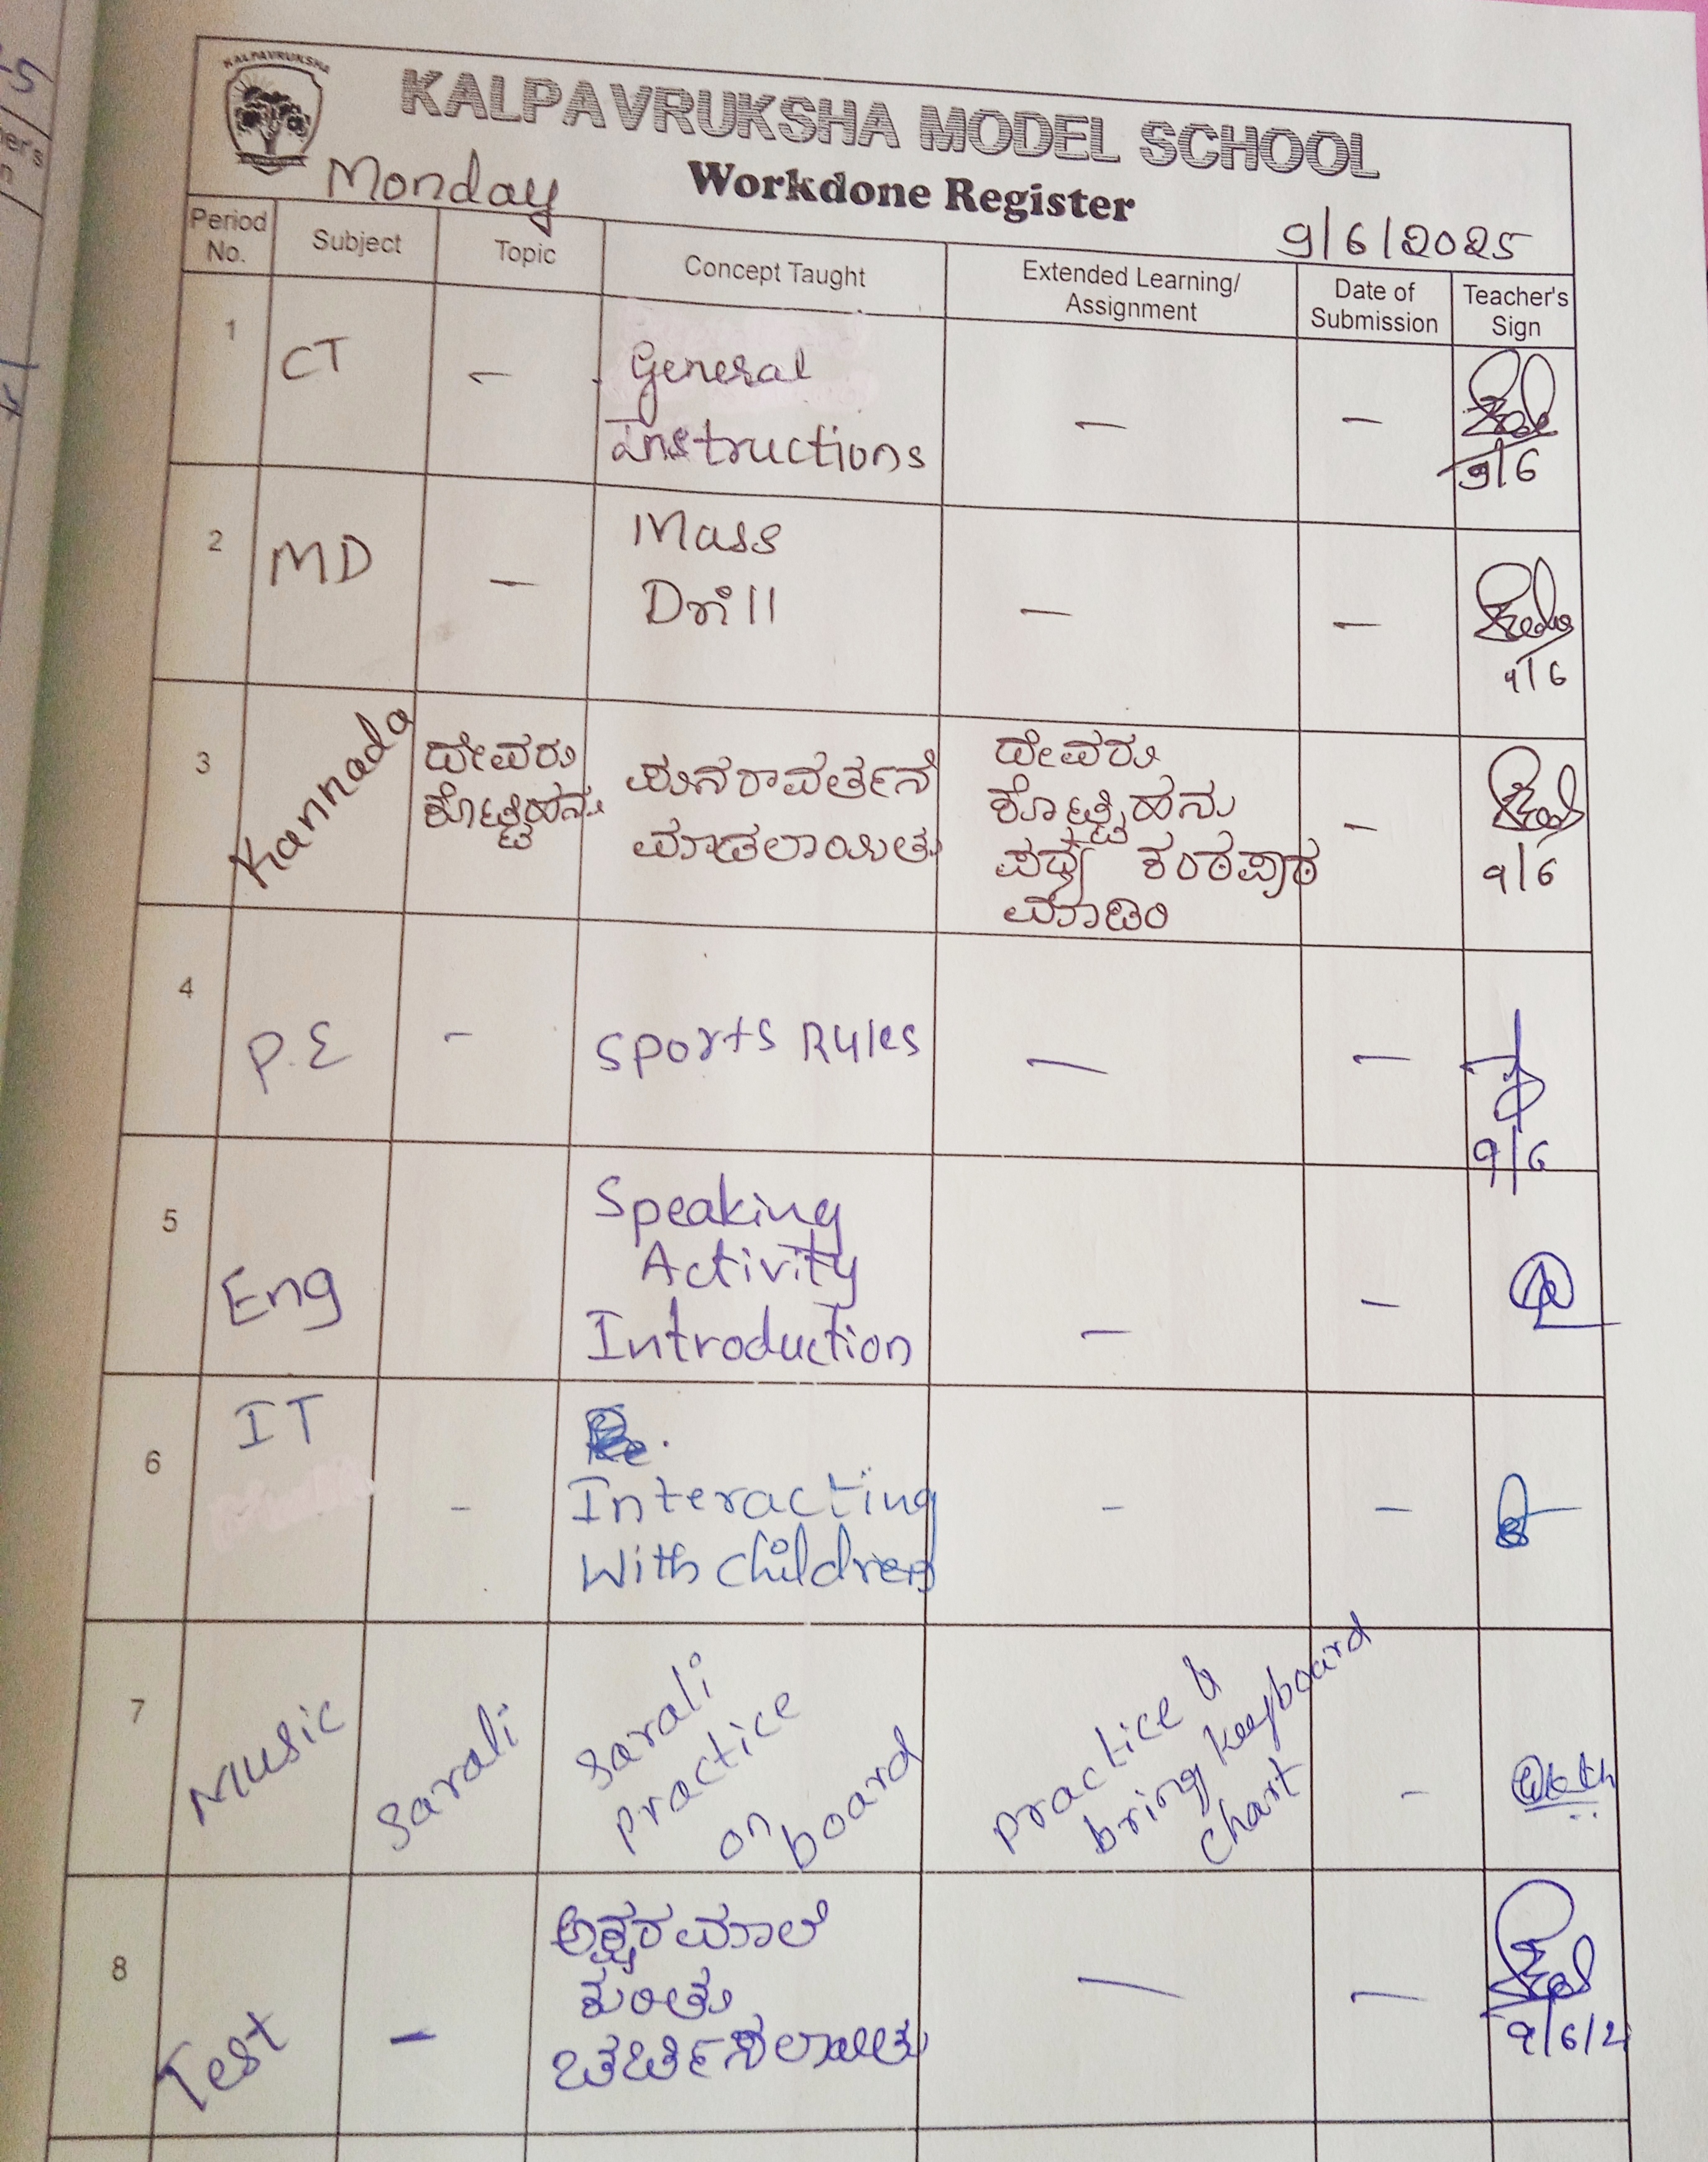 KALPAVRUKSHA
KALPAVRUKSHA MODEL SCHOOL
Monday
Workdone Register
9/6/2025
Period No.
Subject
Topic
Concept Taught
Extended Learning/
Assignment
Date of
Submission
Teacher's
Sign
1
CT
-
General
Instructions
-
-
9/6
2
MD
-
Mass
Drill
-
-
9/6
3
Kannada
ದೇವರು
ಕೊಟ್ಟಿಹನು
ಪುನರಾವರ್ತನೆ
ಮಾಡಲಾಯಿತು
ದೇವರು
ಕೊಟ್ಟಿಹನು
ಪದ್ಯ ಕಂಠಪಾಠ
ಮಾಡಿರಿ
-
9/6
4
P.E
-
Sports Rules
-
-
9/6
5
Eng
Speaking
Activity
Introduction
-
-
6
IT
-
Interacting
With children
-
-
7
Music
Sarali
Sarali
practice
on
board
practice &
bring keyboard
chart
-
8
Test
-
ಅಕ್ಷರಮಾಲೆ
ಕುರಿತು
-
-
9/6/2